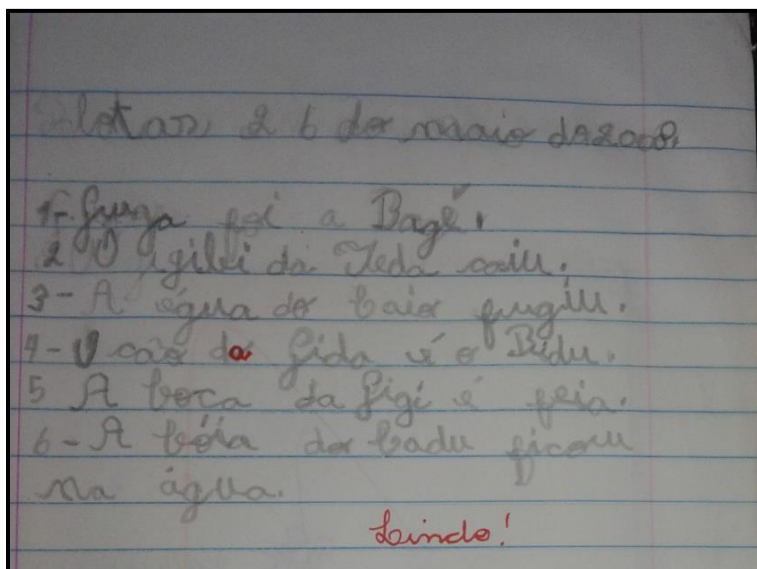 Pelotas, 26 de maio de 2008.
1- Guga foi a Bagé.
2 O gibi da Ieda caiu.
3- A égua do Caio fugiu.
4- O cão da Gida é o Bidu.
5 A boca da Gigi é feia.
6- A bóia do Cadu ficou
na água.
Lindo!